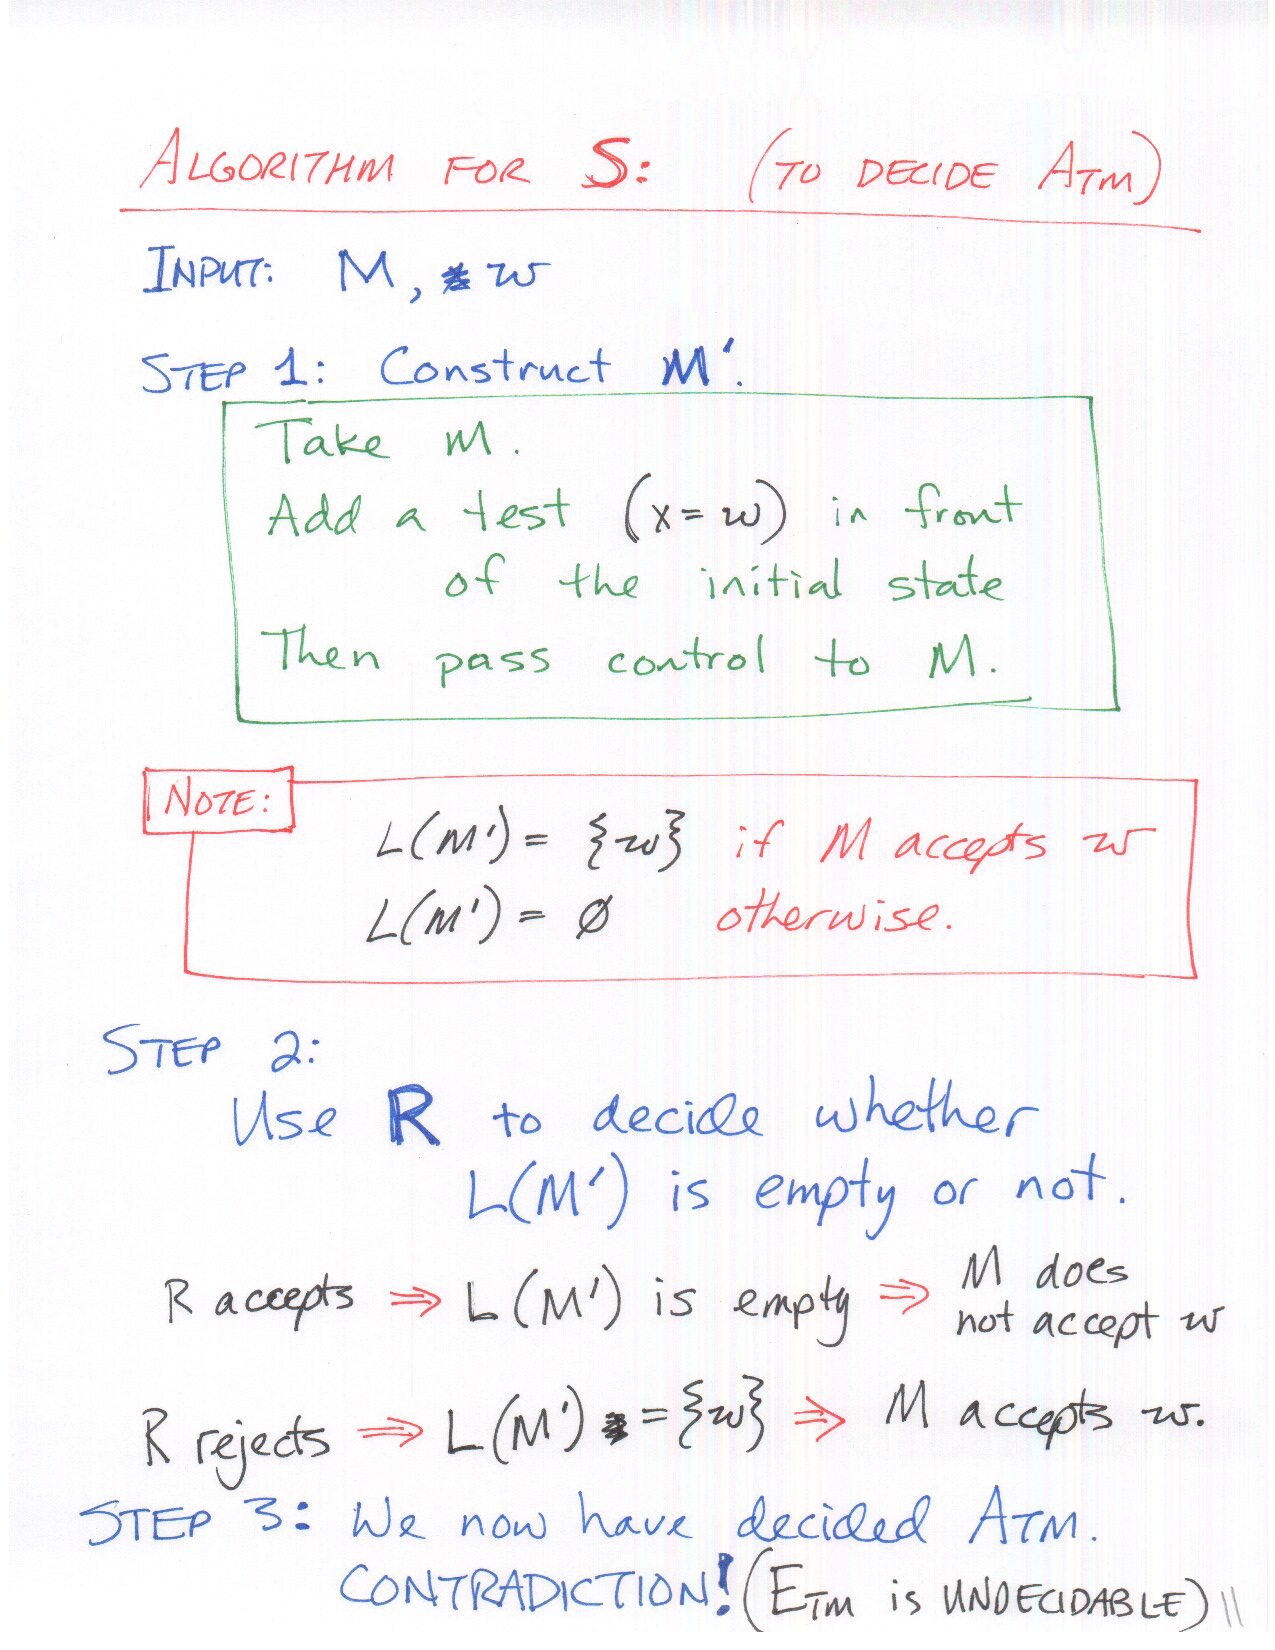 ALGORITHM FOR S: (TO DECIDE ATM)
INPUT: M, w
STEP 1: Construct M'.
Take M.
Add a test (x = w) in front
of the initial state
Then pass control to M.
NOTE:
L(M') = {w} if M accepts w
L(M') = ∅ otherwise.
STEP 2:
Use R to decide whether
L(M') is empty or not.
R accepts ⇒ L(M') is empty ⇒ M does
not accept w
R rejects ⇒ L(M') = {w} ⇒ M accepts w.
STEP 3: We now have decided ATM.
CONTRADICTION! (ETM is UNDECIDABLE)